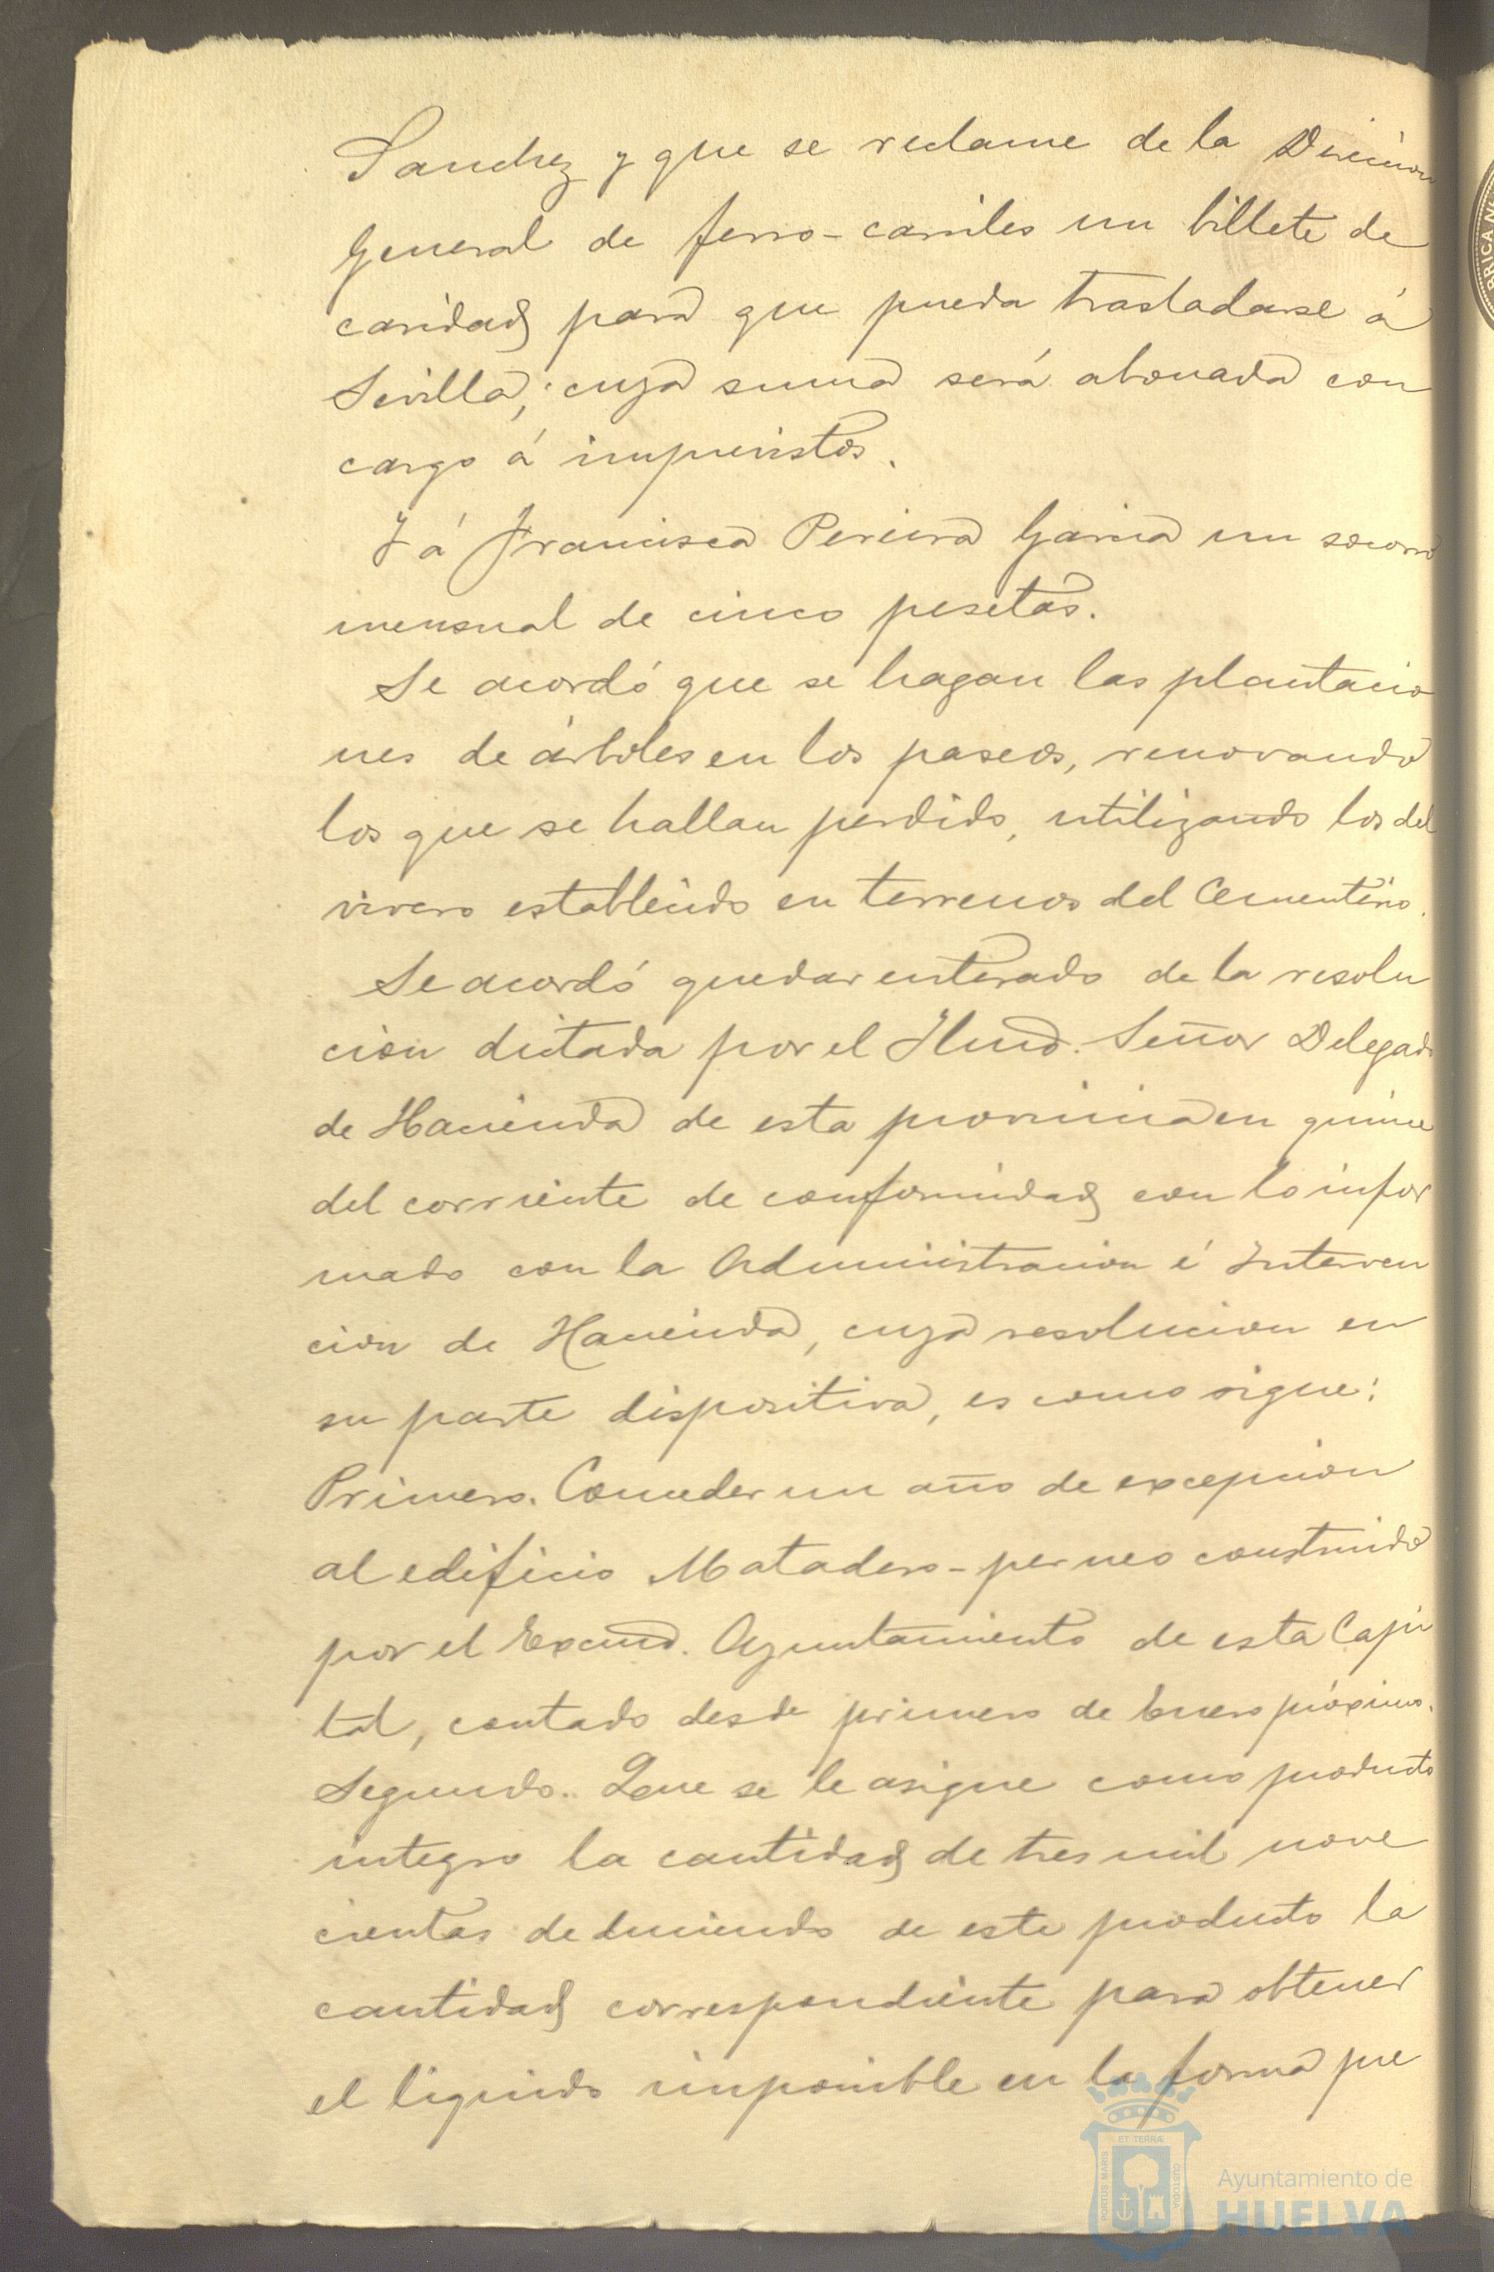 Sanchez y que se reclame de la Direccion
General de ferro-carriles un billete de
caridad para que pueda trasladarse á
Sevilla; cuya suma será abonada con
cargo á imprevistos.
Y á Francisca Pereira Garcia un socorro
mensual de cinco pesetas.
Se acordó que se hagan las plantacio
nes de árboles en los paseos, renovando
los que se hallan perdido, utilizando los del
vivero establecido en terrenos del Cementerio.
Se acordó quedar enterado de la resolu
cion dictada por el Ilmo. Señor Delegado
de Hacienda de esta provincia en quince
del corriente de conformidad con lo infor
mado con la Administracion é Interven
cion de Hacienda, cuya resolucion en
su parte dispositiva, es como sigue:
Primero. Conceder un año de excepcion
al edificio Matadero-perneo construido
por el Excmo. Ayuntamiento de esta Capi
tal, contado desde primero de Enero próximo.
Segundo. Que se le asigne como producto
integro la cantidad de tres mil nove
cientas deduciendo de este producto la
cantidad correspondiente para obtener
el liquido imponible en la forma pre
PORTUS MARIS
ET TERRÆ
CUSTODIA
Ayuntamiento de
HUELVA